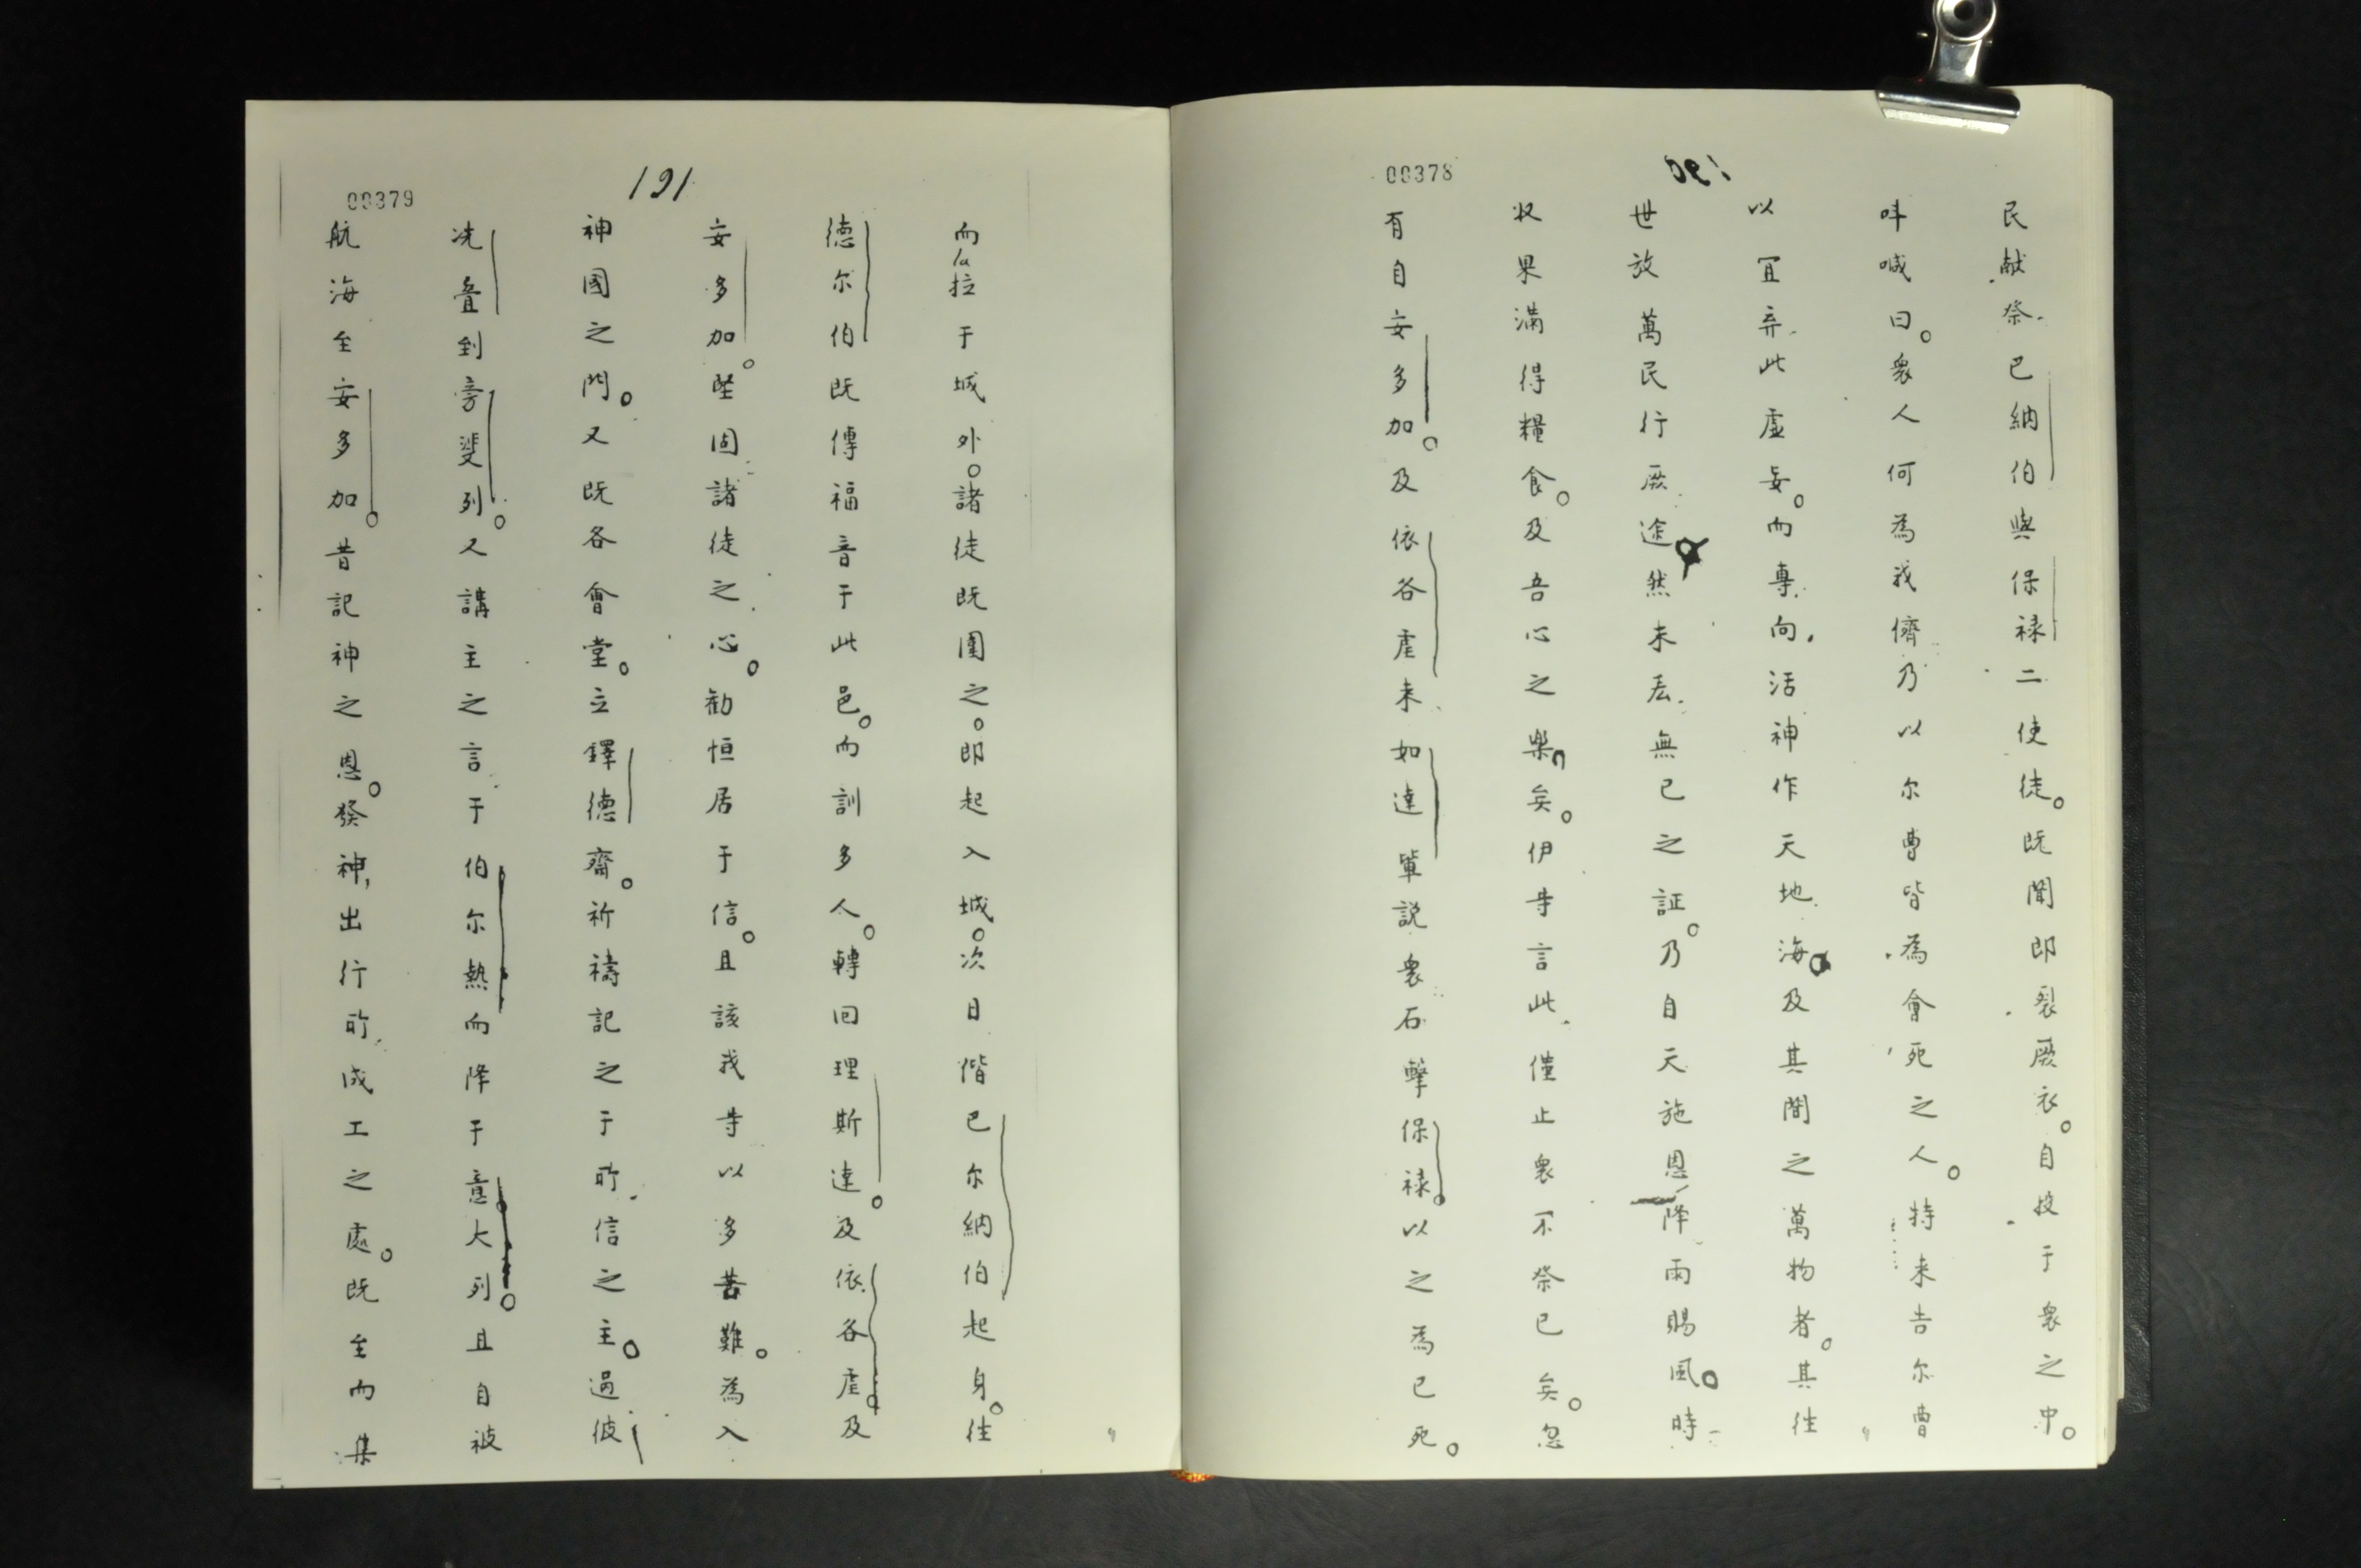 00378
民献祭巴納伯與保禄二使徒。既聞即裂厥衣。自投于衆之中。
呌喊曰。衆人何為我儕乃以尔曹皆為會死之人。特来告尔曹
以冝弃此虚妄。而專向活神作天地海。及其間之萬物者。其往
世放萬民行厥途。然未嘗無已之証。乃自天施恩降雨賜風。時
収果滿得糧食。及吾心之樂矣。伊等言此僅止衆不祭已矣。忽
有自安多加。及依各虐来如達軰説衆石擊保禄。以之為已死。
00379
191
而拉于城外。諸徒既圍之。即起入城。次日偕巴尔納伯起身。往
德尔伯既傳福音于此邑。而訓多人。轉回理斯達。及依各虐。及
安多加。堅固諸徒之心。勸恒居于信。且該我等以多苦難。為入
神國之門。又既各會堂。立鐸德齋。祈禱記之于所信之主。過彼
洗叠到旁斐列。又講主之言于伯尔熱而降于意大列。且自被
航海至安多加。昔記神之恩。發神出行所成工之處。既至而集